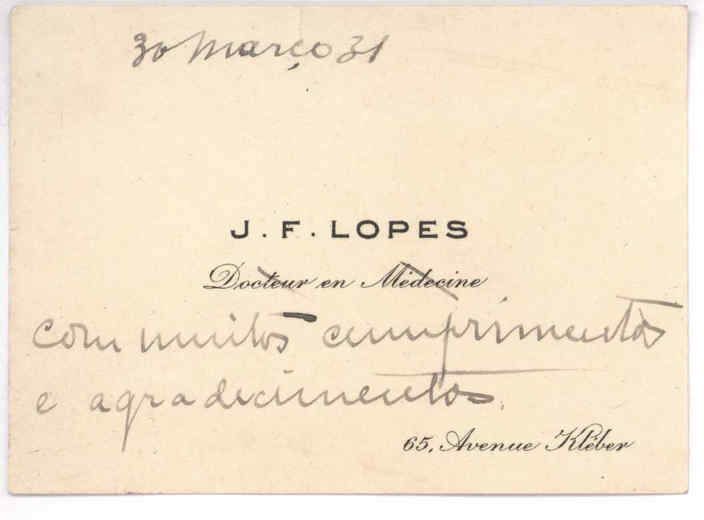 30 Março 31
J. F. LOPES
Docteur en Médecine
com muitos cumprimentos
e agradecimentos.
65, Avenue Kléber